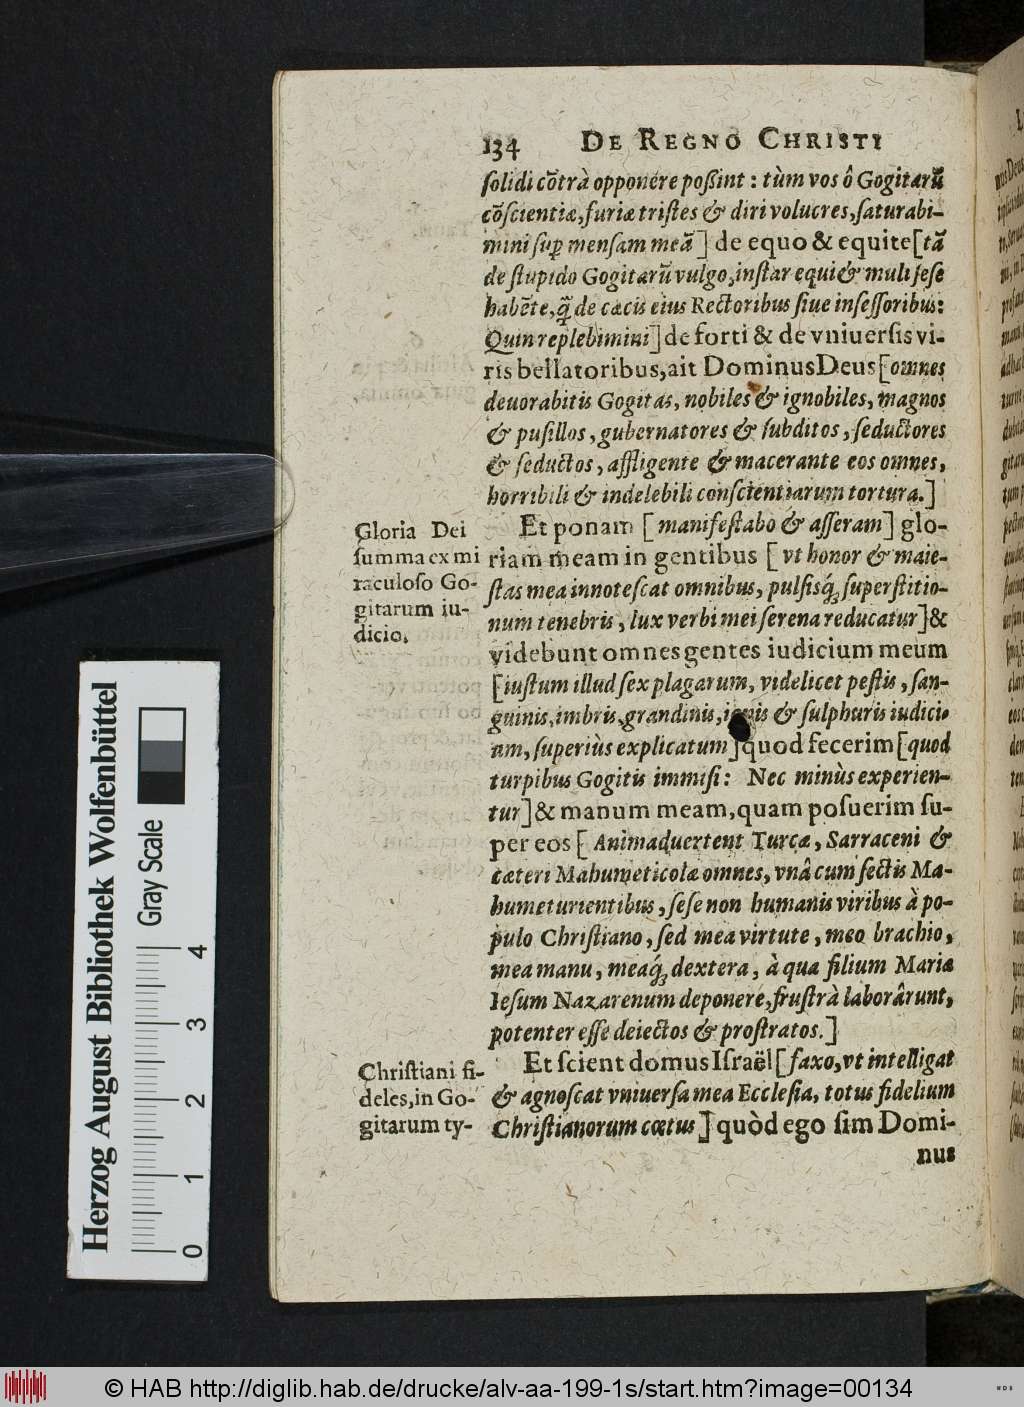 134 DE REGNO CHRISTI
ſolidi cõtrà opponere poßint : tùm vos ô Gogitarũ
cõſcientiæ, furiæ triſtes & diri volucres, ſaturabi-
mini ſuꝑ menſam meã] de equo & equite [tã
de ſtupido Gogitarũ vulgo, inſtar equi & muli ſeſe
habẽte, q̃ de cæcis eius Rectoribus ſiue inſeſſoribus:
Quin replebimini] de forti & de vniuerſis vi-
ris bellatoribus, ait Dominus Deus [omnes
deuorabitis Gogitas, nobiles & ignobiles, magnos
& puſillos, gubernatores & ſubditos, ſeductores
& ſeductos, affligente & macerante eos omnes,
horribili & indelebili conſcientiarum tortura.]
Gloria Dei
ſumma ex mi
raculoſo Go-
gitarum iu-
dicio.
Et ponam [ manifeſtabo & aſſeram] glo-
riam meam in gentibus [ vt honor & maie-
ſtas mea innoteſcat omnibus, pulſisq́; ſuperſtitio-
num tenebris, lux verbi mei ſerena reducatur] &
videbunt omnes gentes iudicium meum
[iuſtum illud ſex plagarum, videlicet peſtis, ſan-
guinis, imbris, grandinis, ignis & ſulphuris iudici-
um, ſuperiùs explicatum] quod fecerim [quod
turpibus Gogitis immiſi: Nec minùs experien-
tur] & manum meam, quam poſuerim ſu-
per eos [ Animaduertent Turcæ, Sarraceni &
cæteri Mahumeticolæ omnes, vnâ cum ſectis Ma-
humeturientibus, ſeſe non humanis viribus à po-
pulo Chriſtiano, ſed mea virtute, meo brachio,
mea manu, meaq́; dextera, à qua filium Mariæ
Ieſum Nazarenum deponere, fruſtrà laborârunt,
potenter eſſe deiectos & proſtratos.]
Chriſtiani fi-
deles, in Go-
gitarum ty-
Et ſcient domus Iſraël [faxo, vt intelligat
& agnoſcat vniuerſa mea Eccleſia, totus fidelium
Chriſtianorum cœtus] quòd ego ſim Domi-
nus
Herzog August Bibliothek Wolfenbüttel
Gray Scale
0 1 2 3 4
© HAB http://diglib.hab.de/drucke/alv-aa-199-1s/start.htm?image=00134
WDB